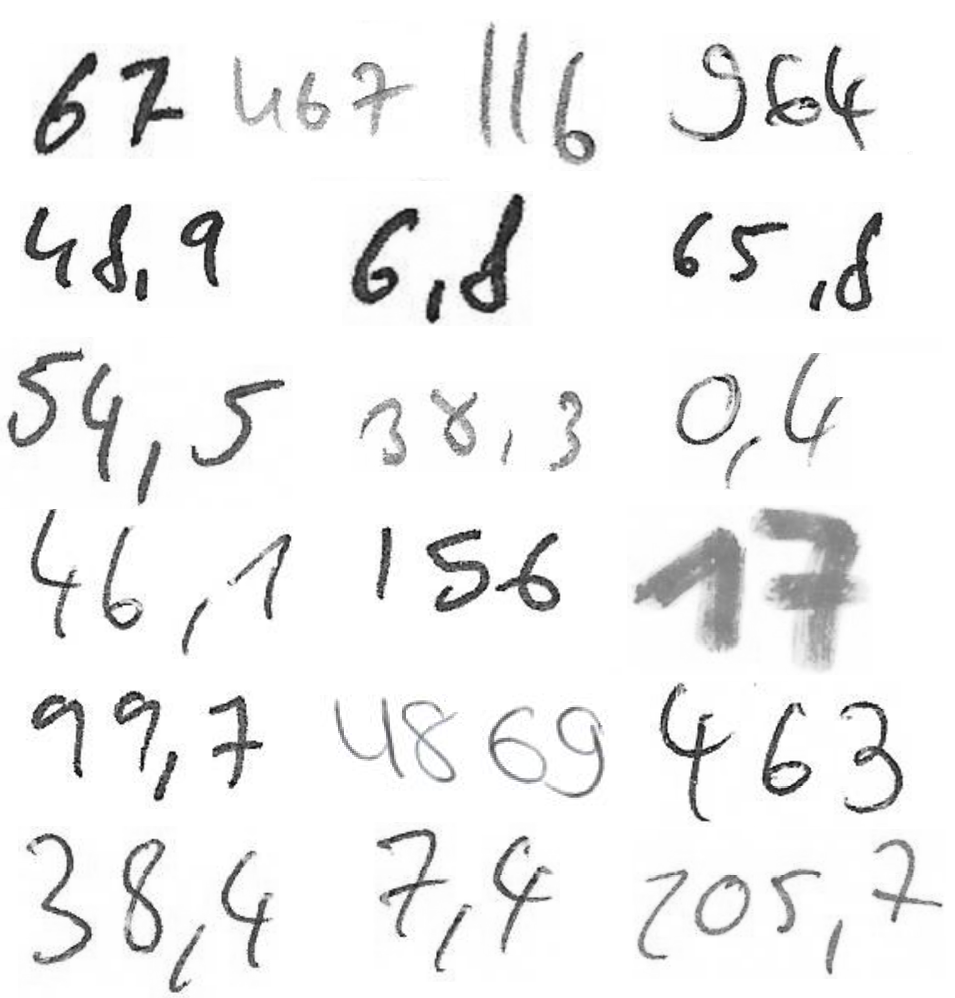 67 467 116 964
48,9 6,8 65,8
54,5 38,3 0,4
46,1 156 17
99,7 4869 463
38,4 7,4 205,7